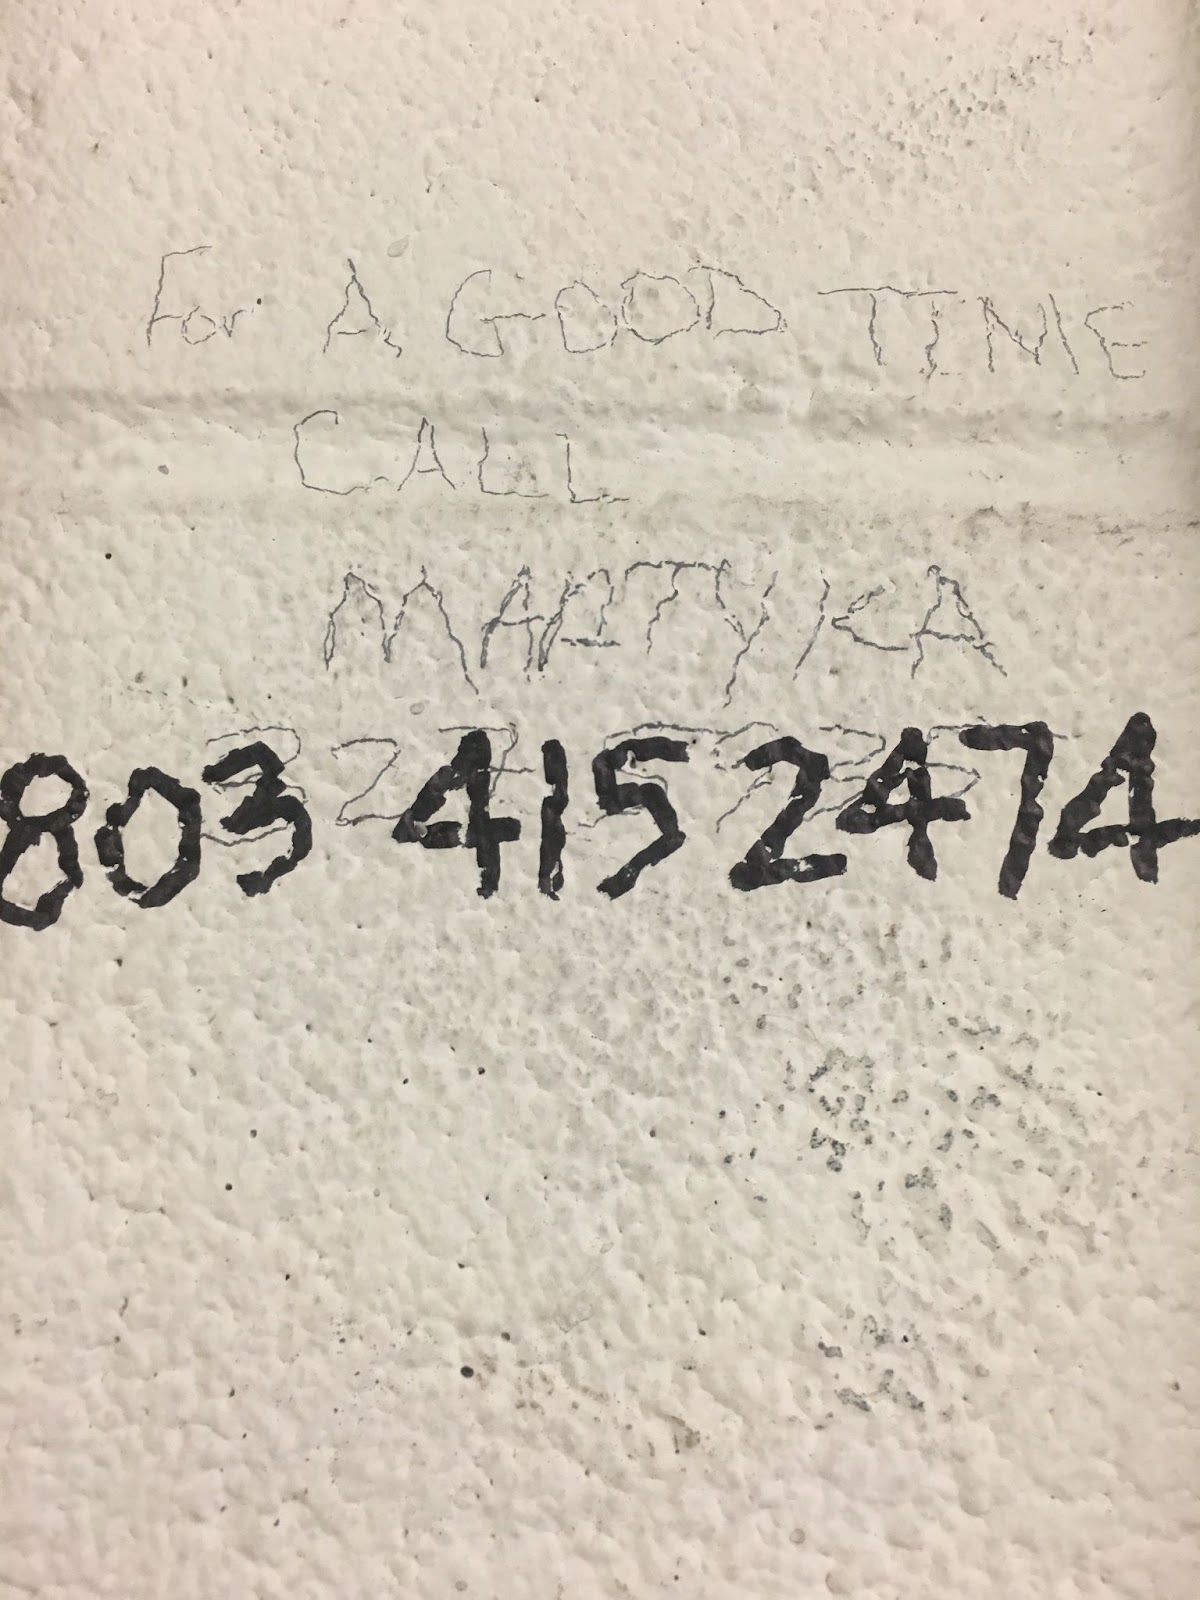 For A GOOD TIME
CALL
MARTYKA
803 415 2474